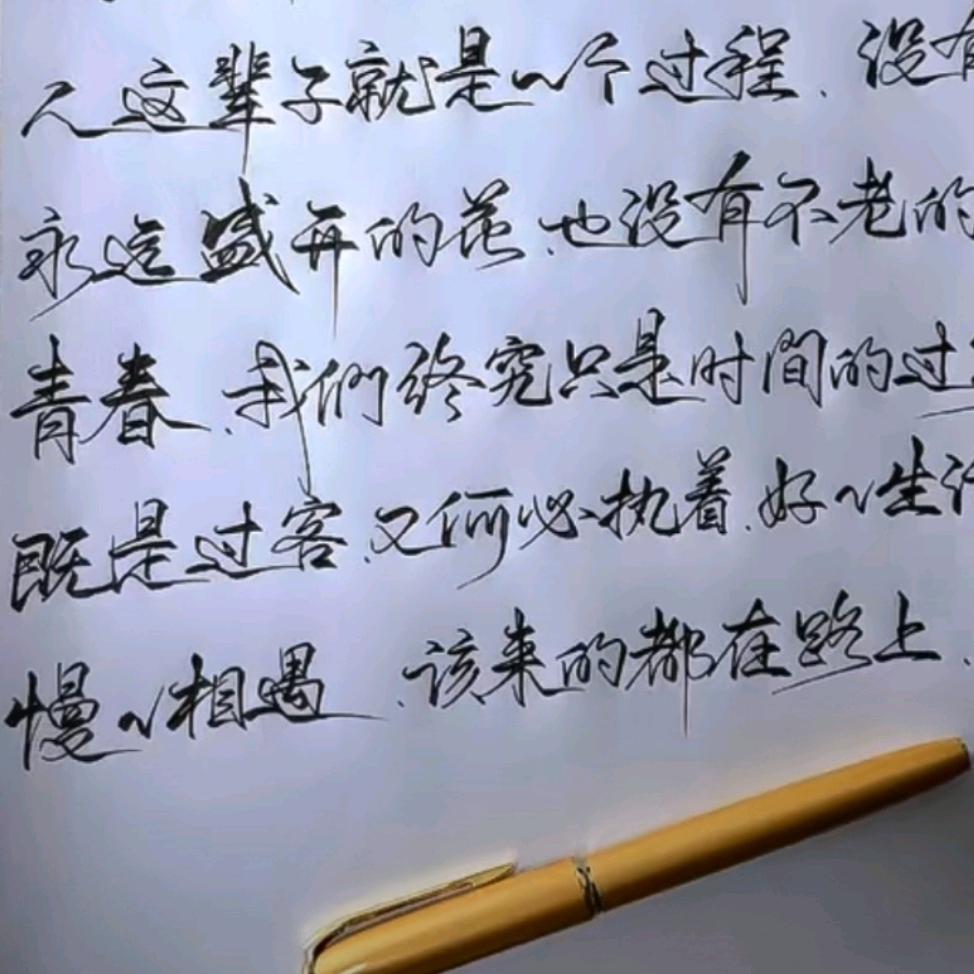 人这辈子就是一个过程、没有
永远盛开的花、也没有不老的
青春、我们终究只是时间的过
既是过客、又何必执着、好~生活
慢~相遇、该来的都在路上、